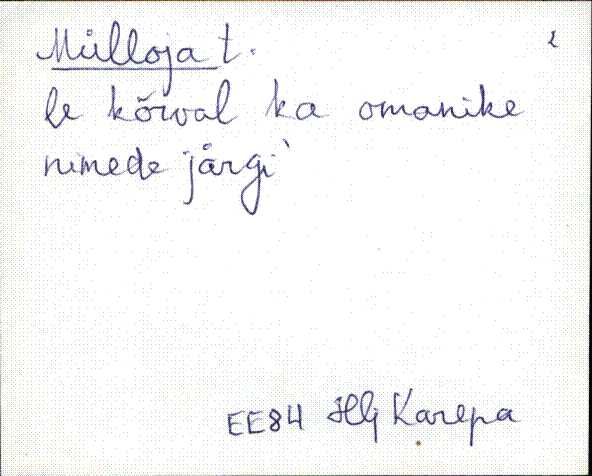 Mülloja t.
2
le kõrval ka omanike
nimede järgi
EE84 Hlj Karepa